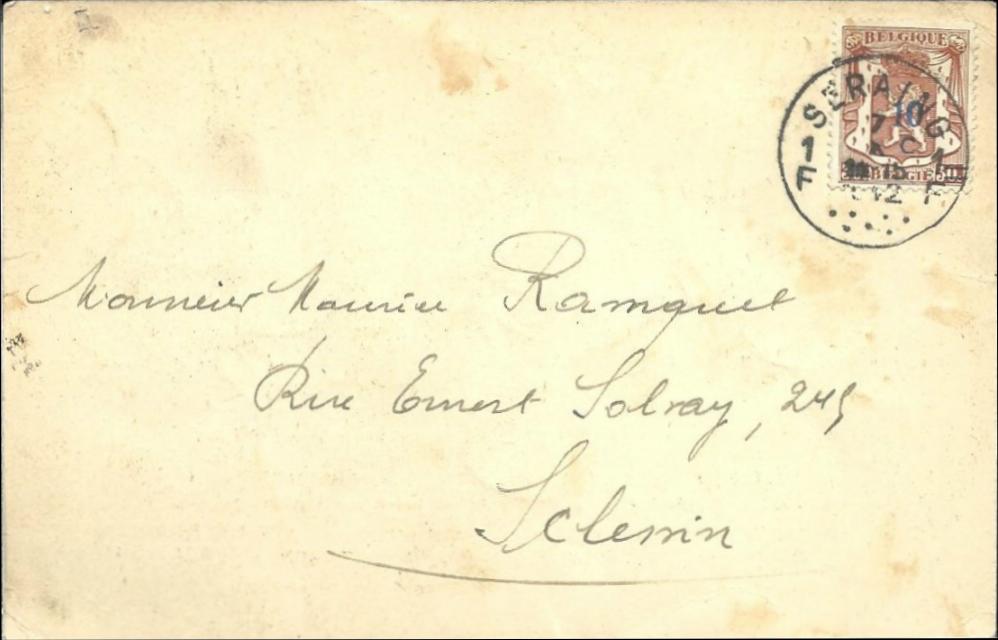 BELGIQUE
10
BELGIË
SERAING
1 1
F F
7
Monsieur Maurice Ramquet
Rue Ernest Solvay, 245
Sclessin